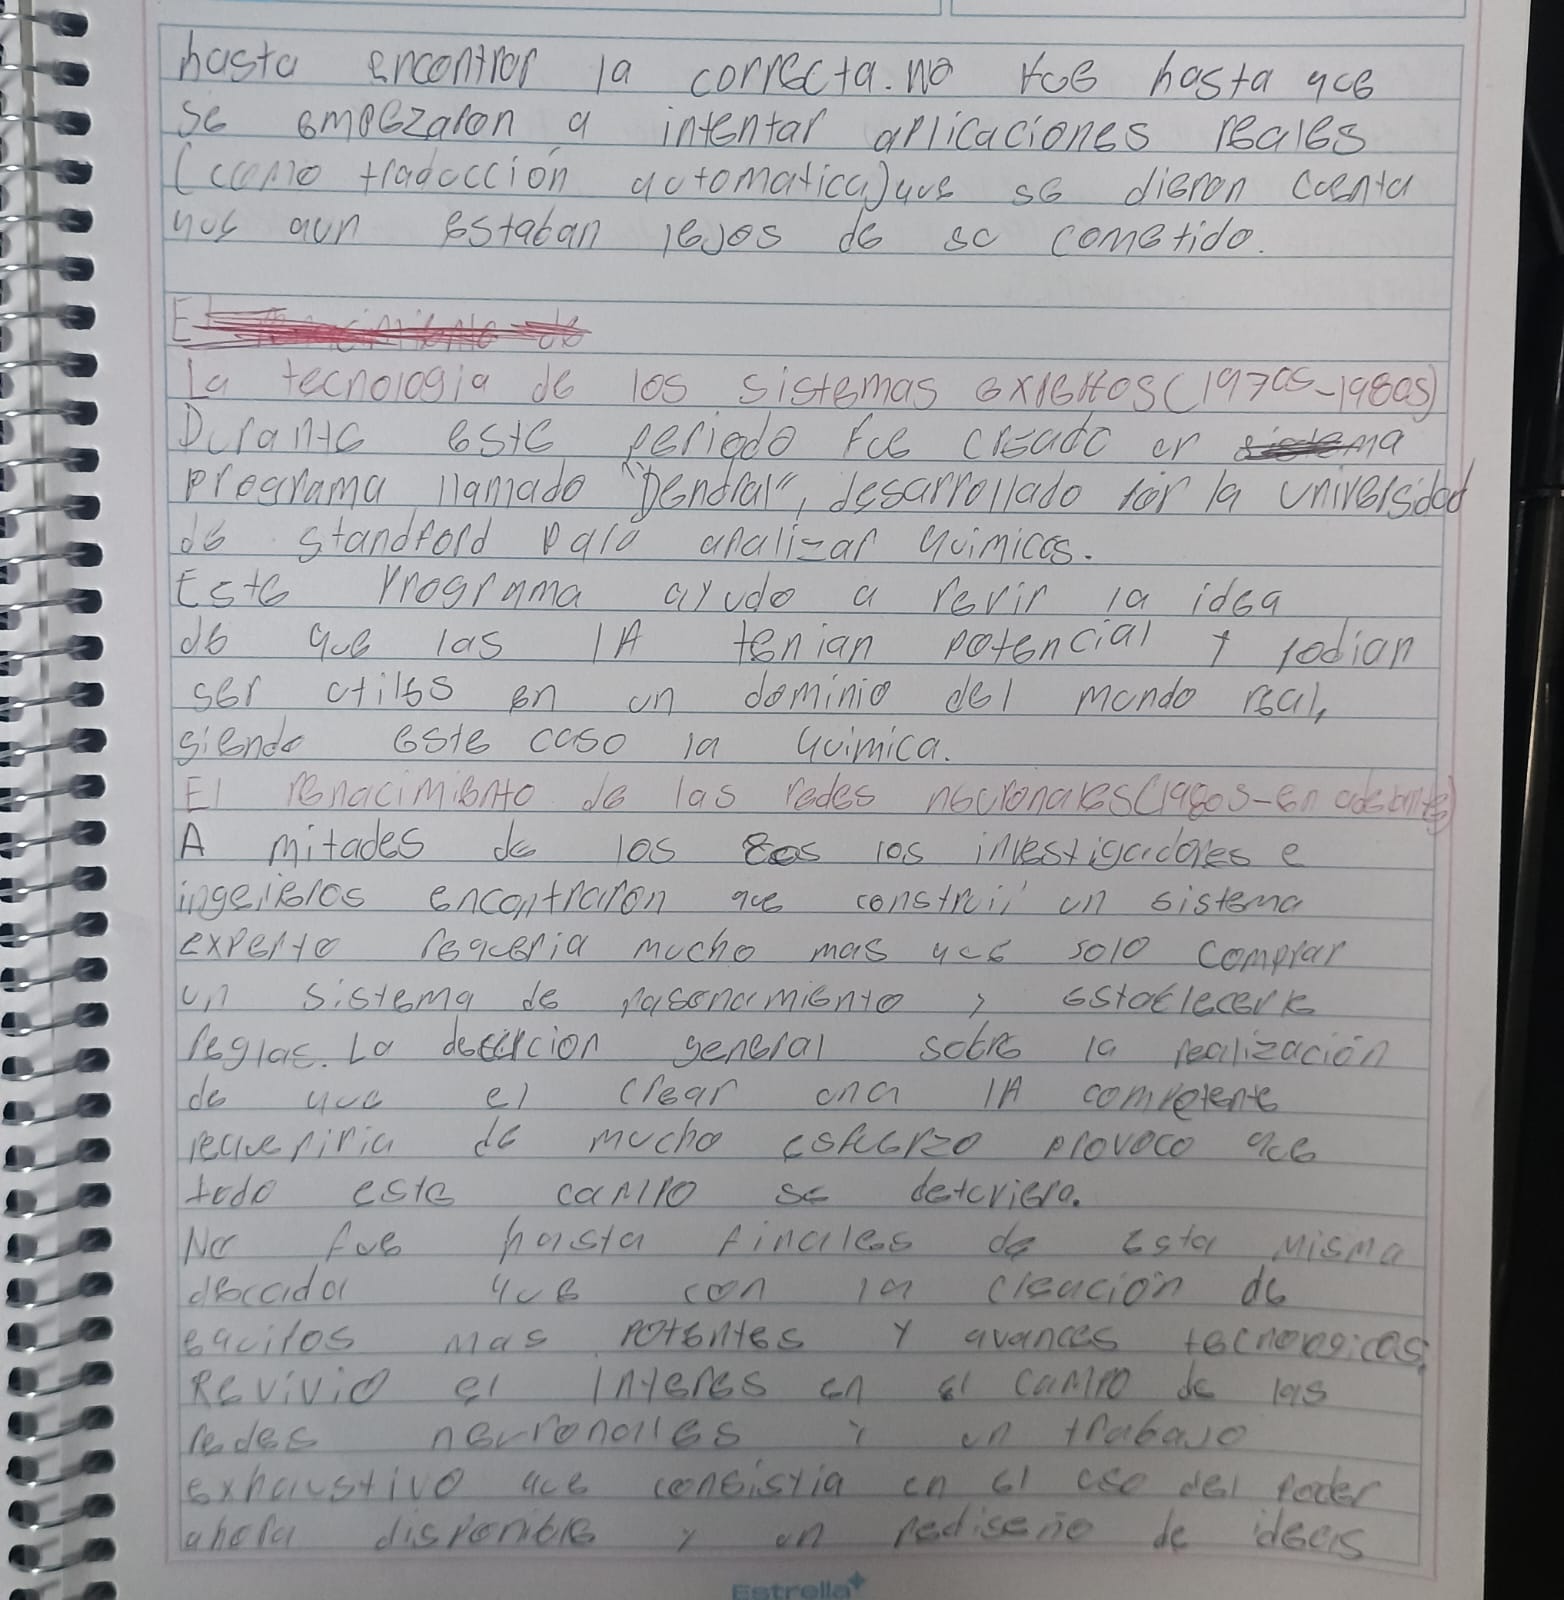 hasta encontrar la correcta. No fue hasta que
se empezaron a intentar aplicaciones reales
(como traduccion automatica) que se dieron cuenta
que aun estaban lejos de su cometido.
El
La tecnologia de los sistemas expertos (1970s-1980s)
Durante este periodo fue creado un
programa llamado "Dendral", desarrollado por la universidad
de standford para analizar quimicos.
Este programa ayudo a revir la idea
de que las IA tenian potencial y podian
ser utiles en un dominio del mundo real,
siendo este caso la quimica.
El renacimiento de las redes neuronales (1980s-en adelante)
A mitades de los 80s los investigadores e
ingenieros encontraron que construir un sistema
experto requeria mucho mas que solo comprar
un sistema de rasonamiento y establecerle
reglas. La general sobre la realización
de que el crear una IA competente
requeriria de mucho esfuerzo provoco que
todo este campo se detuviera.
No fue hasta finales de esta misma
decada que con la creación de
equipos mas potentes y avances tecnologicos,
Revivio el interes en el campo de las
redes neuronales y un trabajo
exhaustivo que consistia en el uso del poder
ahora disponible y un rediseño de ideas
Estrella